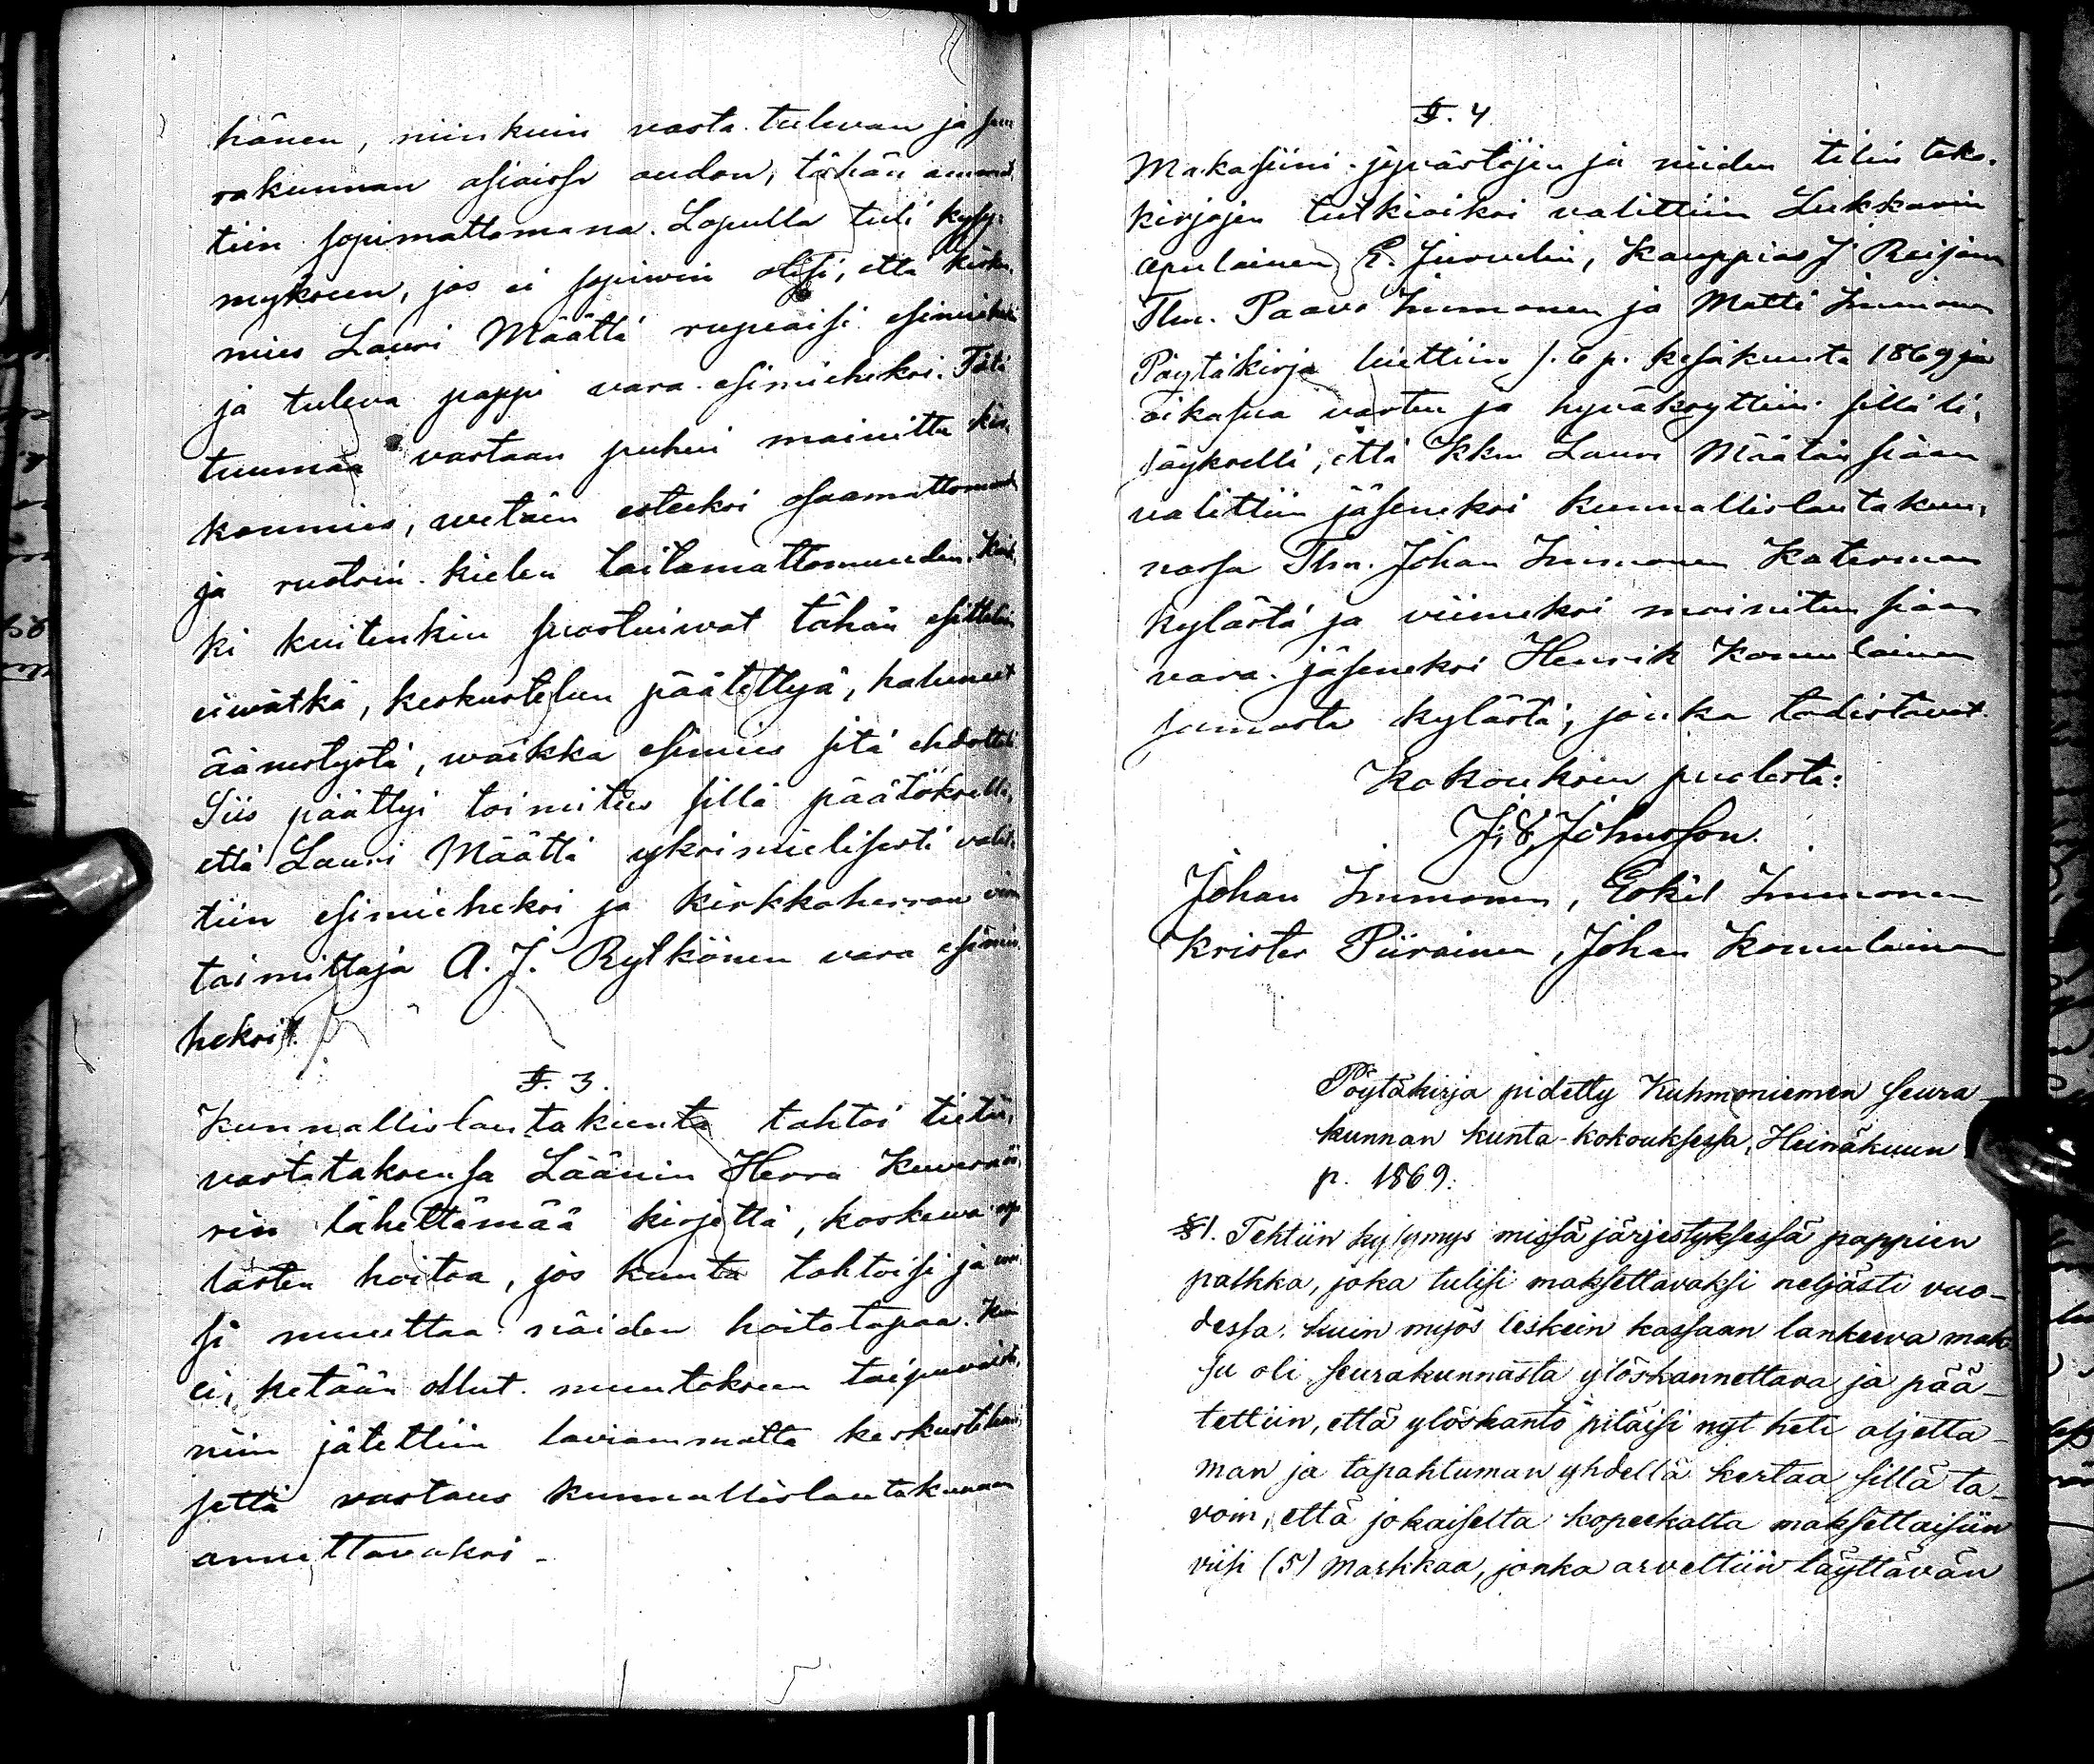 hänen, niinkuin vasta-tulevan ja seu
rakunnan asioissa oudon, tähän ammat,
tiin sopimattomana. Lopulla tuli kysy-
mykseen, jos ei sopiwin olisi, että kirkon
mies Lauri Määttä rupeaisi esimieheksi
ja tuleva pappi vara-esimieheksi. Tätä
tuumaa vastaan puhui mainittu kir,
konmies, wetäen esteeksi osaamattomuud
ja ruotsin-kielen taitamattomuuden. Kaik,
ki kuitenkin suostuiwat tähän esittelein
eiwätkä, keskustelun päätettyä, haluneet
äänestystä, waikka esimies sitä ehdotteli
Siis päättyi toimitus sillä päätöksellä,
että Lauri Määttä yksimielisesti valit,
tiin esimieheksi ja kirkkoherran viran
toimittaja A. J. Rytkönen vara esimie
heksi.
§. 3.
Kunnallislautakunta tahtoi tietä,
vastataksensa Läänin Herra Kuvernöö,
rin lähettämää kirjettä, koskewa
lasten hoitoa, jos kunta tahtoisi ja voi
si muuttaa näiden hoitotapaa. Kun
ei, ketään ollut muutokseen taipuvaista,
niin jätettiin laviammatta keskustele,
settä vastaus kunnallislautakunnan
annettavaksi -
§. 4
Makasiini-jyvästöjen ja niiden tilin teko-
kirjojen tutkioiksi valittiin Lukkarin
apulainen E. Juvelin, Kauppias J Reijonen
Tlm. Paavo Immonen ja Matti Immonen
Pöytäkirja luettiin s. 6 p. kesäkuuta 1869 ja
aikansa vasten ja hyväksyttiin sillä li,
säyksellä, että Kkm Lauri Määtän siaan
valittiin jäseneksi kunnallislautakun,
nassa Tlm. Johan Immonen Katerman
kylästä ja viimeksi mainitun siaan
vara-jäseneksi Henrik Komulainen
samasta kylästä, jonka todistavat.
Kokouksen puolesta:
Johnsson.
Johan Immonen, Eskil Immonen
Krister Piirainen, Johan Komulainen
Pöytäkirja pidetty Kuhmoniemen seura-
kunnan kunta-kokouksessa, Heinäkuun
p. 1869.
§1. Tehtiin kysymys missä järjestyksessä pappien
palkka, joka tulisi maksettavaksi neljästi vuo-
dessa. kuin myös leskein kassaan lankeewa mak
su oli seurakunnasta ylöskannettava ja pää-
tettiin, että ylöskanto pitäisi nyt heti aljetta-
man ja tapahtuman yhdellä kertaa sillä ta-
voin, että jokaiselta kopeekalta maksettaisiin
viisi (5) Markkaa, jonka arveltiin täyttävän